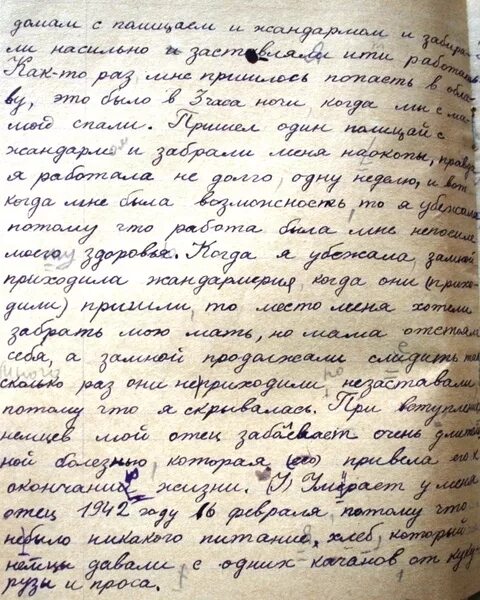 домам с полицаем и жандармом и забирали
ли насильно и заставляли ити работать
Как-то раз, мне пришлось попасть в обла-
ву, это было в 3 часа ночи, когда мы с ма-
мой спали. Пришел один полицай с
жандармом и забрали меня на окопы, правда
я работала не долго, одну неделю, и вот
когда мне была возможность, то я убежала
потому что работа была мне непосиль
моего здоровья. Когда я убежала, замной
приходила жандармерия, когда они (прихо-
дили) пришли, то место меня хотели
забрать мою мать, но мама отстояла
себя, а замной продолжали слидить
сколько раз они неприходили, незаставали
потому что я скрывалась. При вступлении
немцев мой отец забаевает очень длитель
ной болезнью, которая (его) привела его к
окончанию жизни. (У) Умерает у меня
отец 1942 году 16 февраля, потому что
небыло никакого питание, хлеб, который
немцы давали с одних качанов от куку-
рузы и проса.